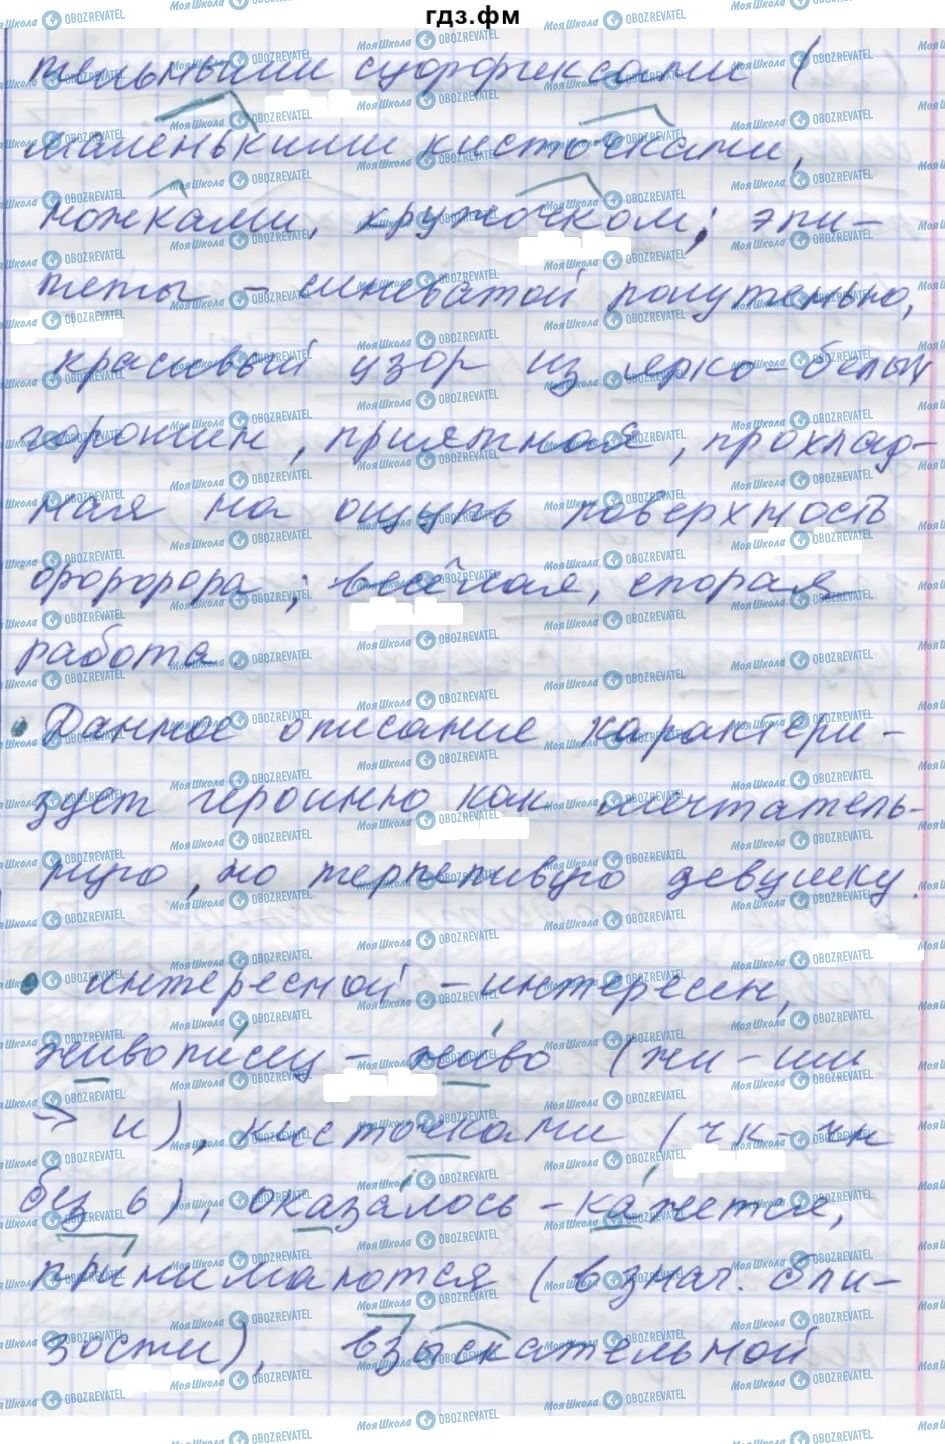 гдз.фм
тельными суффиксами (
маленькими кисточками,
ножками, кружочком; эпи-
теты – синеватой полутенью,
красивый узор из ярко-белых
горошин, приятная, прохлад-
ная на ощупь поверхность
фарфора; весёлая, спорая
работа.
• Данное описание характери-
зует героиню как мечтатель-
ную, но терпеливую девушку.
• интересной – интересен,
живописец – живо (жи-ши
→ и), кисточками (чк-чн
без ь), оказалось – кажется,
принимаются (в знач. бли-
зости), взыскательной
МояШкола OBOZREVATEL